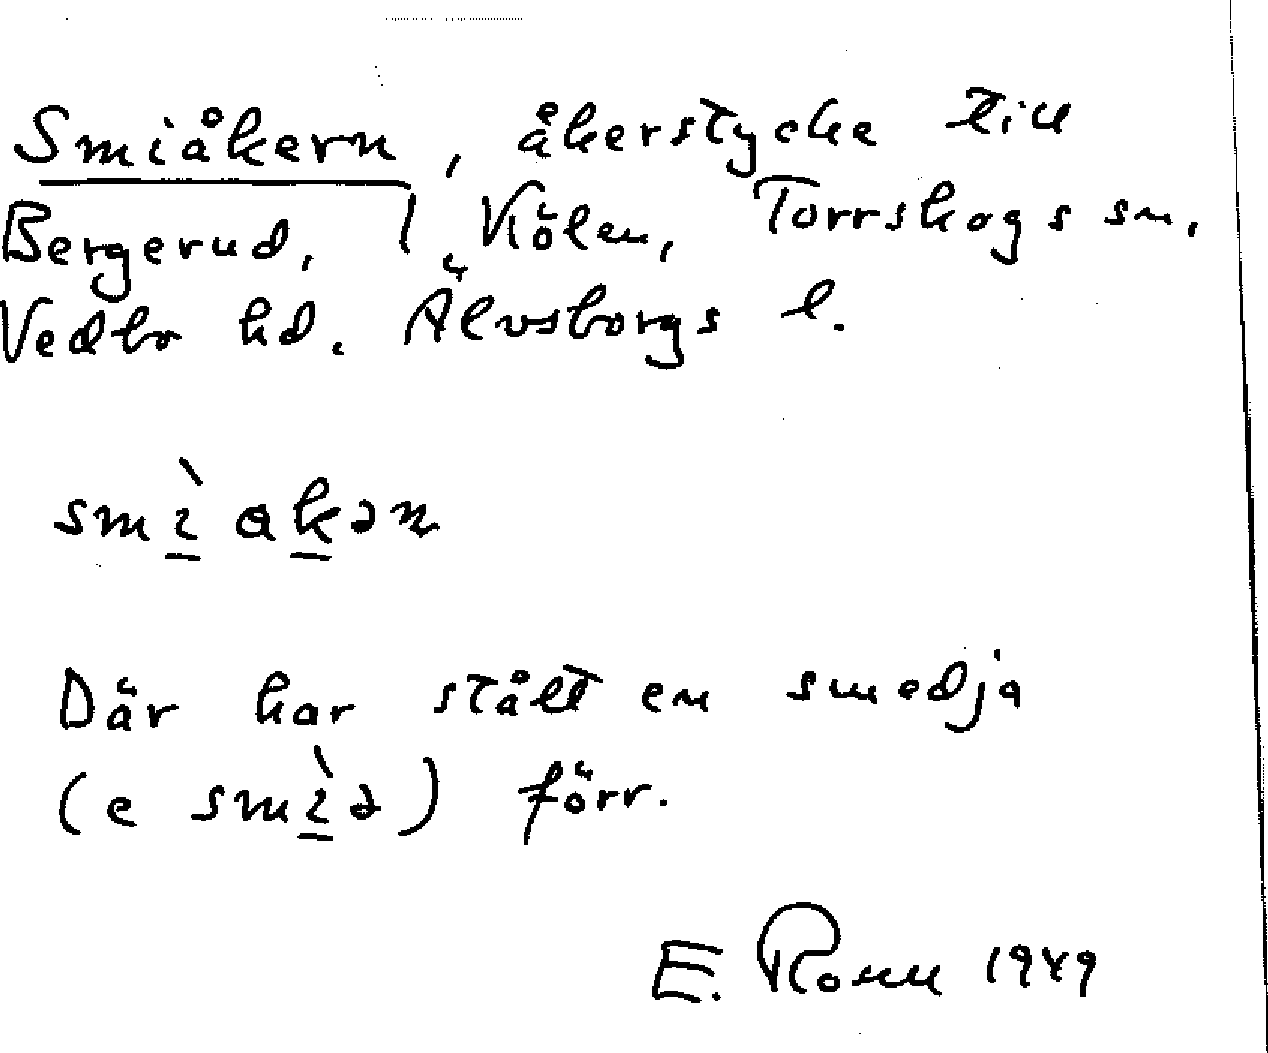 Smiåkern, åkerstycke till
Bergerud, 1 Kölen, Torrskogs sn,
Vedbo hd. Älvsborgs l.
smìakən
Där har stått en smedja
(e smìə) förr.
E. 1949